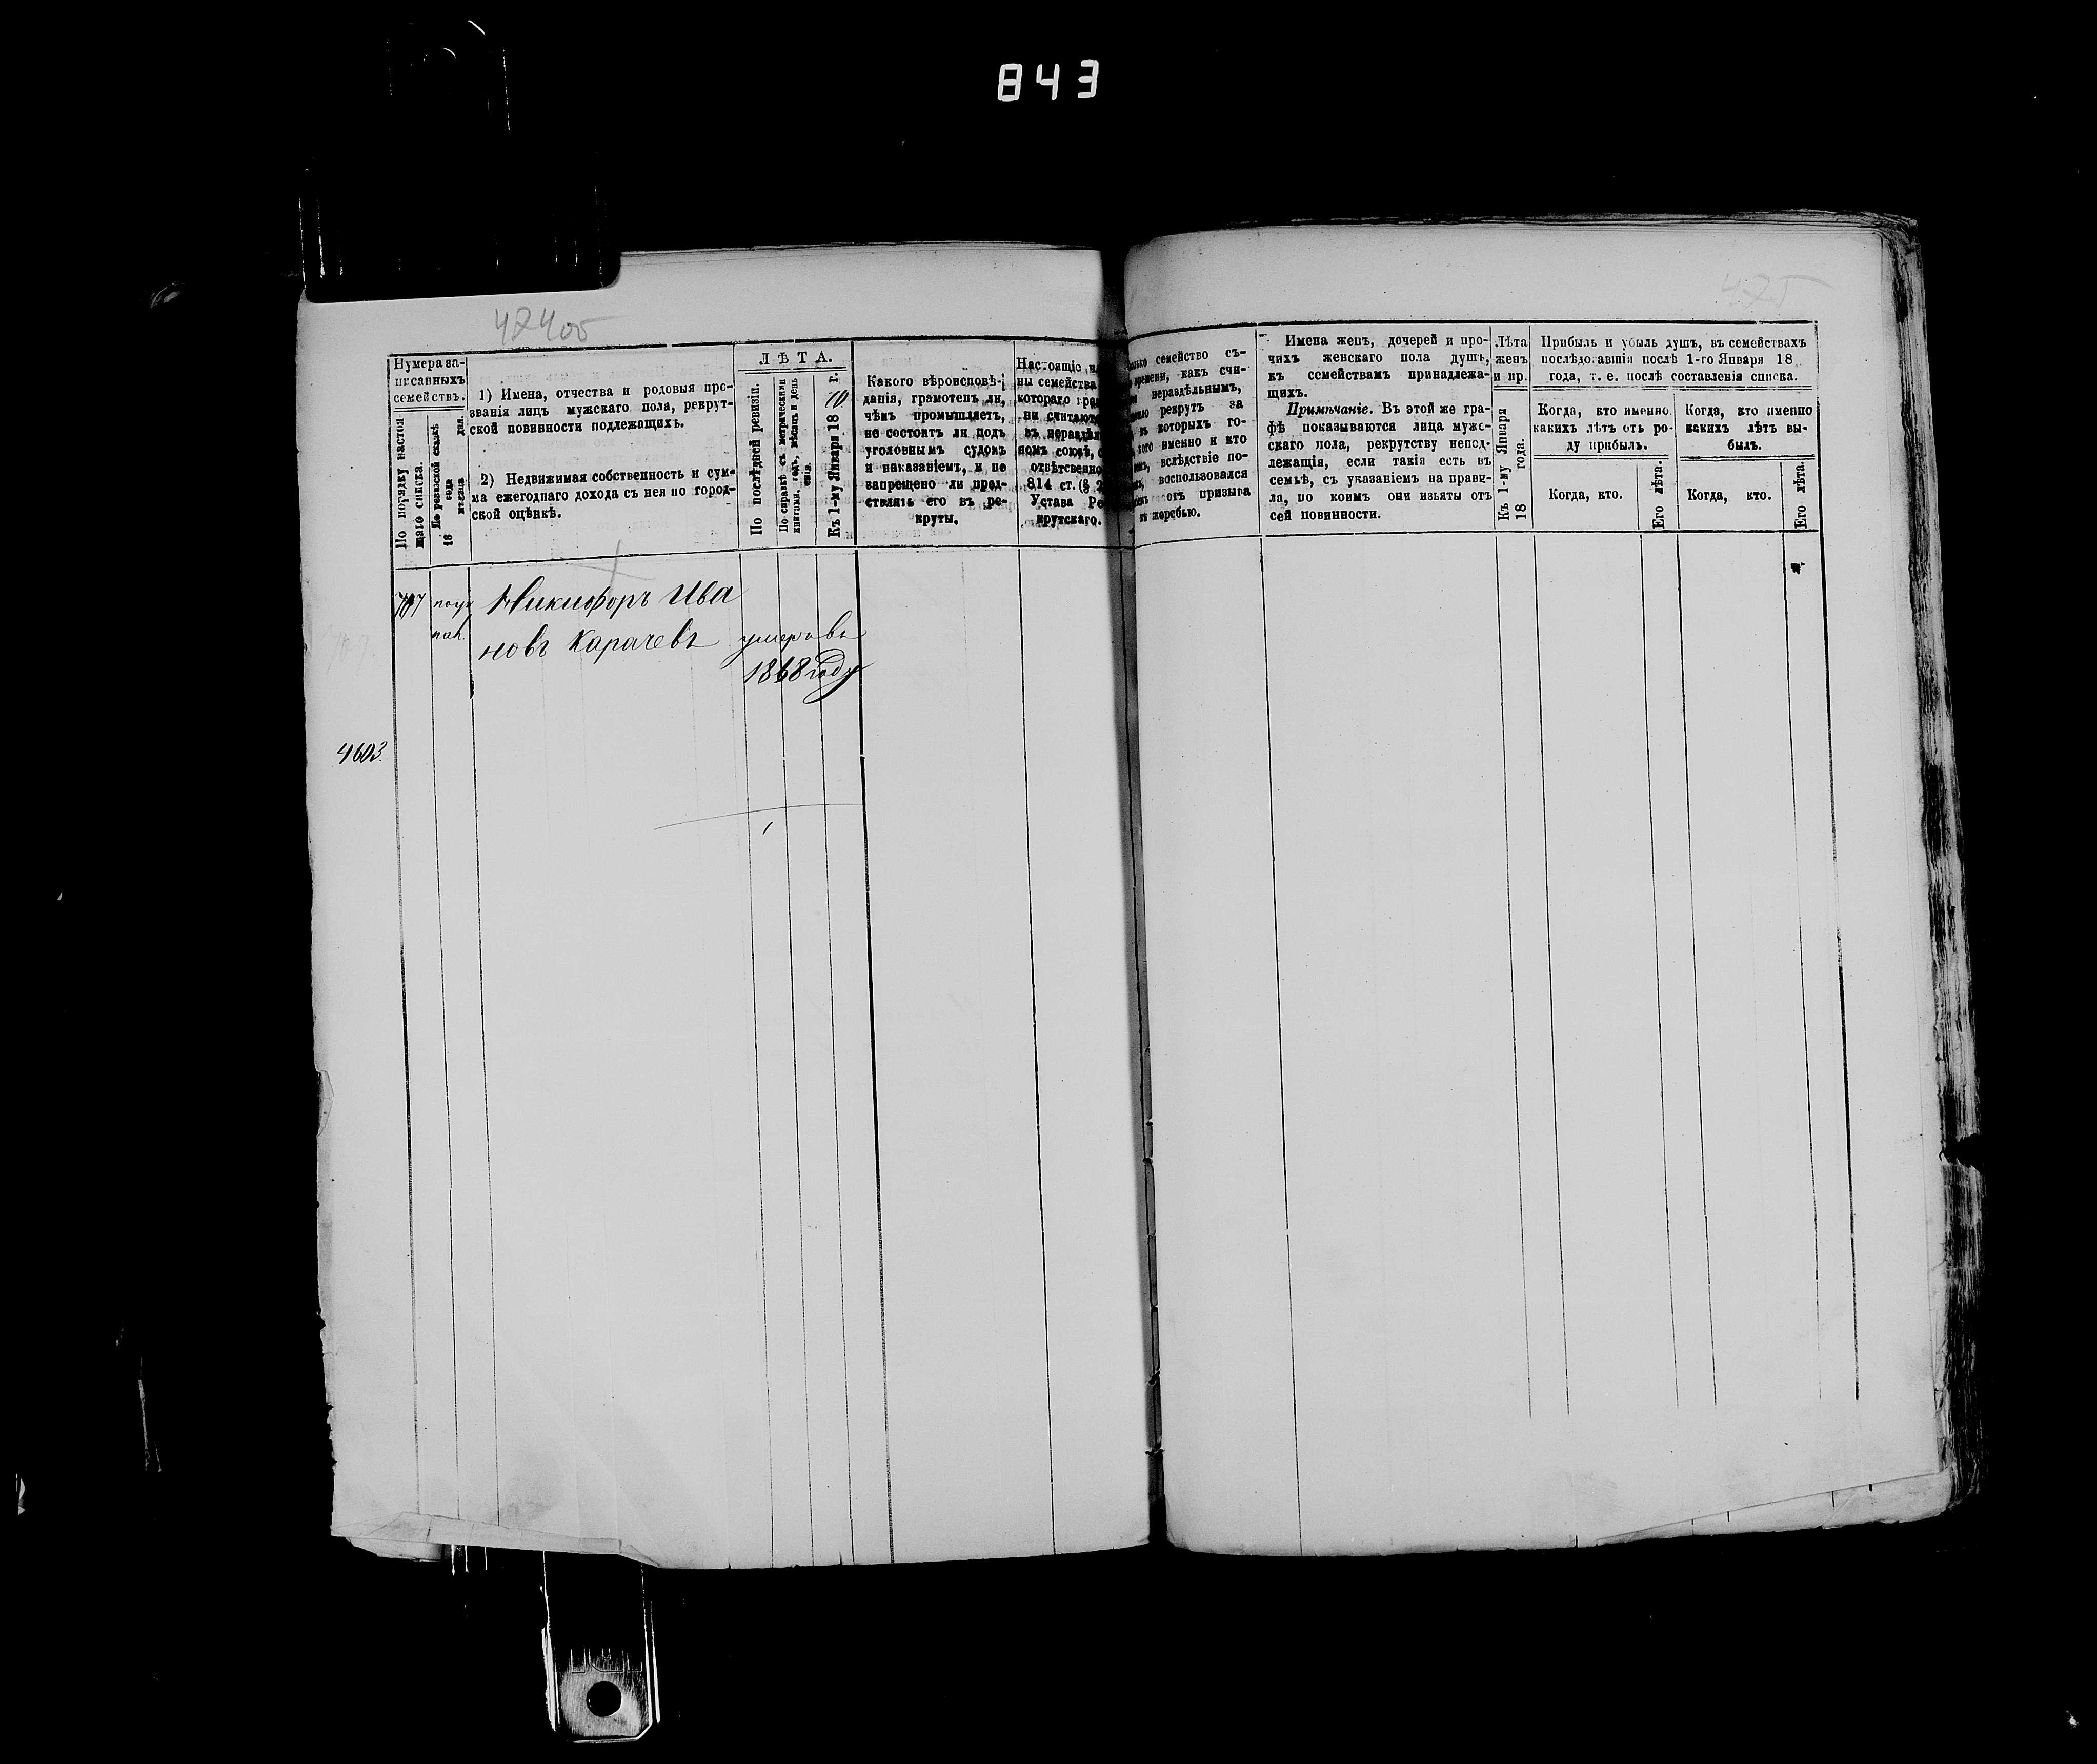 843
424об
425
Нумера за-
писанныхъ
семействъ.
По порядку настоя
щаго списка.
По ревизской сказкѣ
18 года
мѣсяца дня.
1) Имена, отчества и родовыя про-
званія лицъ мужскаго пола, рекрут-
ской повинности подлежащихъ.
2) Недвижимая собственность и сум-
ма ежегоднаго дохода съ нея по город-
ской оцѣнкѣ.
ЛѢТА.
По послѣдней ревизіи.
По справкѣ съ метрическими
книгами, годъ, мѣсяцъ и день
Къ 1-му Января 1870 г.
Какого вѣроисповѣ-
данія, грамотенъ ли,
чѣмъ промышляетъ,
не состоитъ ли подъ
уголовнымъ судомъ
и наказаніемъ, и не
запрещено ли пред-
ставлять его въ ре-
круты.
Настоящіе
ны семейства
котораго
ни считаютс
въ нераздѣл
номъ союзѣ, с
отвѣтственно
814 ст. (§ 2
Устава Ре
крутскаго.
семейство съ-
времени, какъ счи-
нераздѣльнымъ,
рекрутъ за
которыхъ го-
кого именно и кто
вслѣдствіе по-
воспользовался
призыва
къ жеребью.
Имена женъ, дочерей и про-
чихъ женскаго пола душъ,
къ семействамъ принадлежа-
щихъ.
Примѣчаніе. Въ этой же гра-
фѣ показываются лица мужс-
скаго пола, рекрутству непод-
лежащія, если такія есть въ
семьѣ, съ указаніемъ на прави-
ла, по коимъ они изъяты отъ
сей повинности.
Лѣта
женъ
и пр.
Къ 1-му Января
18 года.
Прибыль и убыль душъ, въ семействахъ
послѣдовавшія послѣ 1-го Января 18
года, т. е. послѣ составленія списка.
Когда, кто именно
какихъ лѣтъ отъ ро-
ду прибылъ.
Когда, кто.
Его лѣта.
Когда, кто именно
какихъ лѣтъ вы-
былъ.
Когда, кто.
Его лѣта.
Никифоръ Ива
новъ Карачевъ умеръ въ
1868 году
4603.